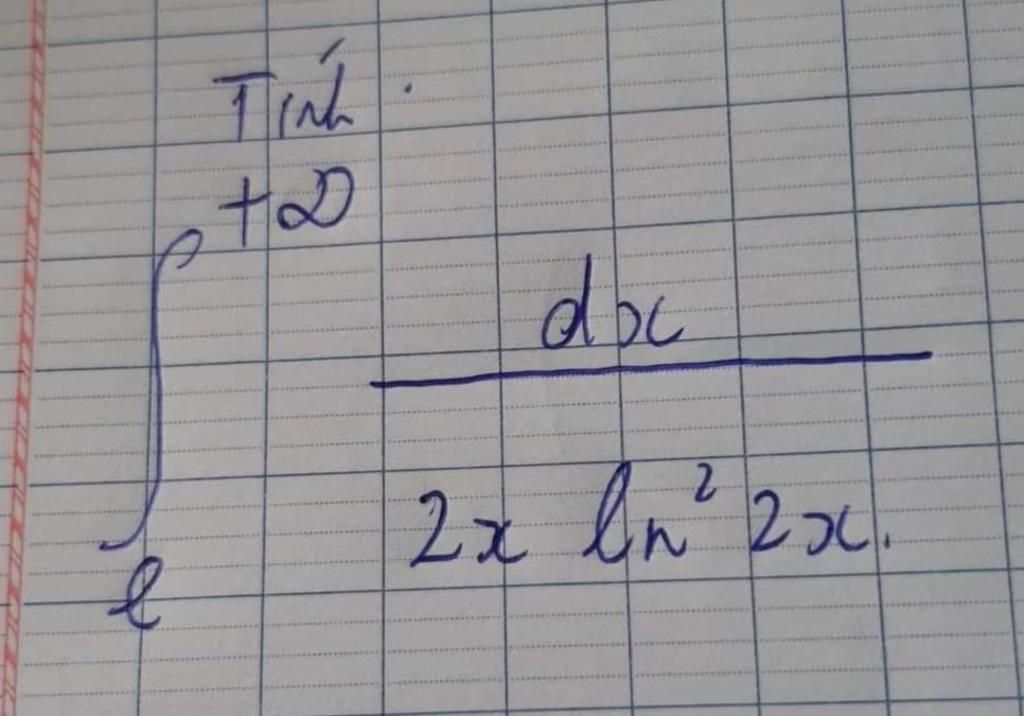 Tính
+∞
∫
dx
2x ln² 2x.
e